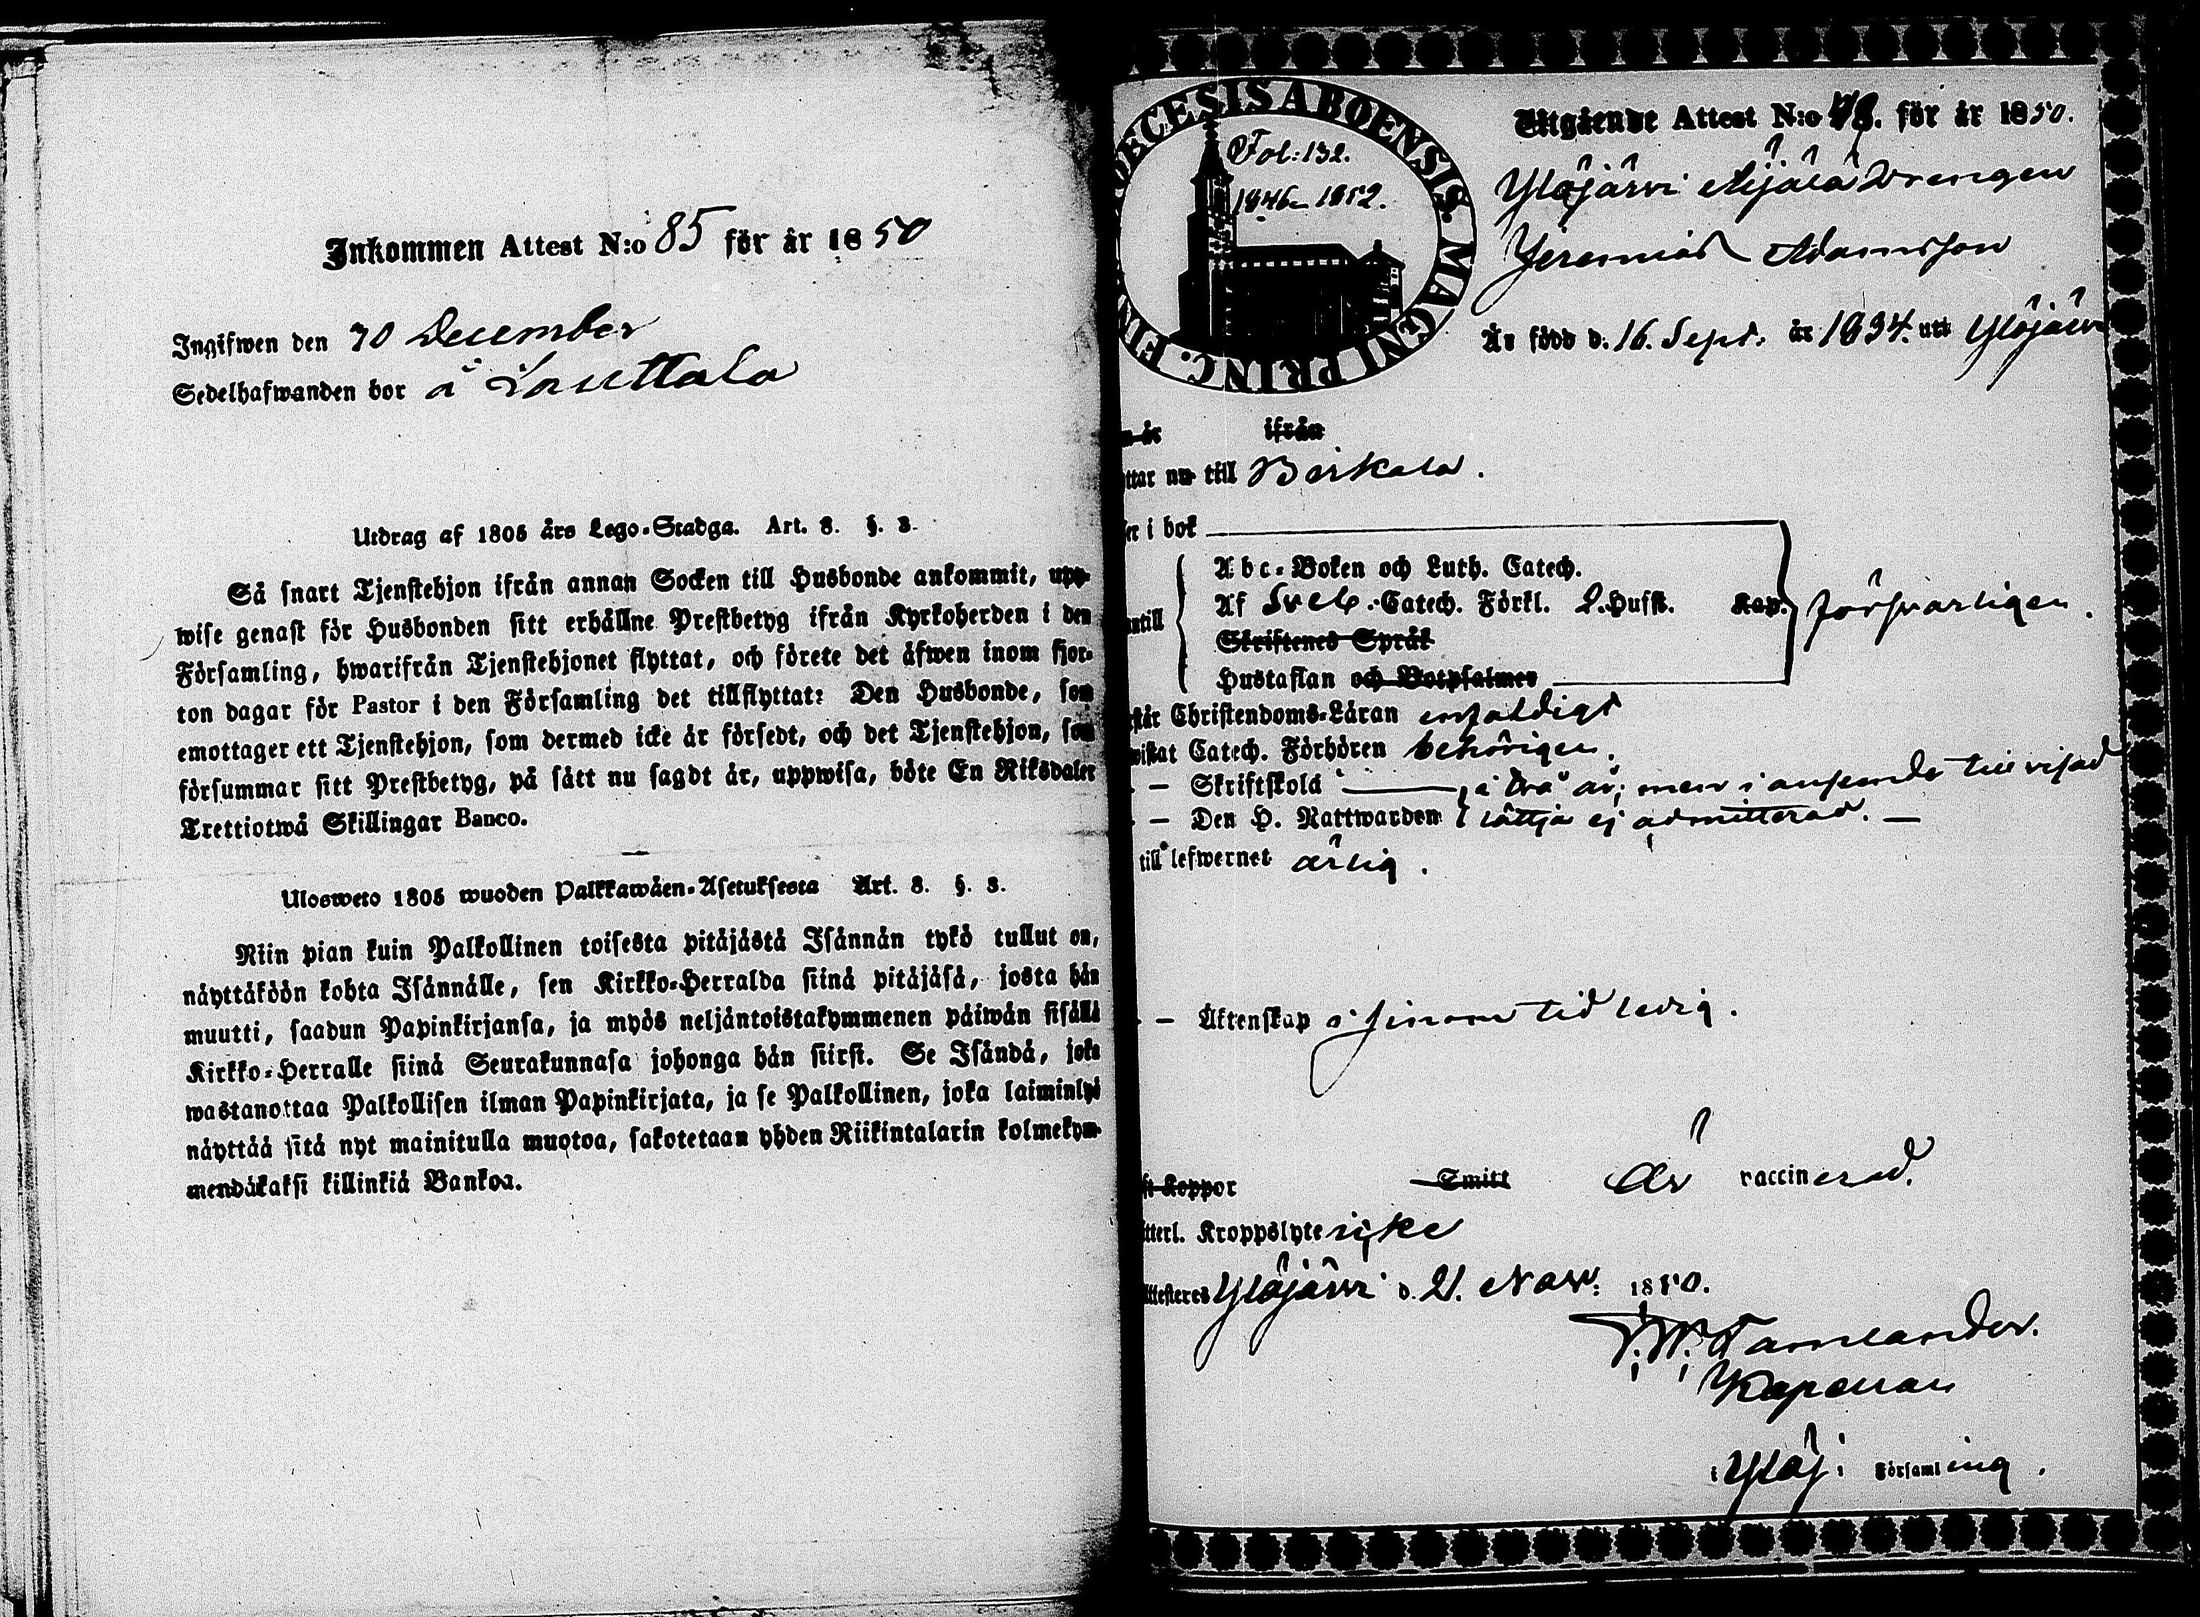 Inkommen Attest N:o 85 för år 1850
Ingifwen den 30 December
Sedelhafwanden bor å Lauttala
Utdrag af 1805 års Lego-Stadga. Art. 8. §. 3.
Så snart Tjenstehjon ifrån annan Socken till Husbonde ankommit, upp-
wise genast för Husbonden sitt erhållne Prestbetyg ifrån Kyrkoherden i den
Församling, hwarifrån Tjenstehjonet flyttat, och förete det äfwen inom fjor-
ton dagar för Pastor i den Församling det tillflyttat: Den Husbonde, som
emottager ett Tjenstehjon, som dermed icke är försedt, och det Tjenstehjon, som
försummar sitt Prestbetyg, på sätt nu sagdt är, uppwisa, böte En Riksdaler
Trettiotwå Skillingar Banco.
Ulosweto 1805 wuoden Palkkawäen-Asetuksesta Art. 8. §. 3.
Niin pian kuin Palkollinen toisesta pitäjästä Isännän tykö tullut on,
näyttäköön kohta Isännälle, sen Kirkko-Herralda siinä pitäjäsä, josta hän
muutti, saadun Papinkirjansa, ja myös neljäntoistakymmenen päiwän sisällä
Kirkko-Herralle siinä Seurakunnasa johonga hän siirsi. Se Isändä, joka
wastanottaa Palkollisen ilman Papinkirjata, ja se Palkollinen, joka laiminlyö
näyttää sitä nyt mainitulla muotoa, sakotetaan yhden Riikintalarin kolmekym-
mendäkaksi killinkiä Bankoa.
DIOECESIS ABOENSIS. MAGNI PRINC. FIN
Fol: 132.
1846-1852.
Utgående Attest N:o 78. för år 1850.
Ylöjärvi Mjälä Drengen
Jeremias Adamsson
Är född d. 16. Sept. år 1834. utt Ylöjärvi
n år ifrån
ttar nu till Birkala.
er i bok
Abc-Boken och Luth. Catech.
Af Sveb. Catech. Förkl. 2. Hufst. Kap. försvarligen.
antill
Skriftenes Språk
Hustaflan och Botpsalmer
står Christendoms-Läran enfaldigt
wistat Catech. Förhören behörigen.
— Skriftskola i två år; men i anseende till visad
— Den H. Nattwarden lättja ej admitterad. —
till lefwernet ärlig.
— Äktenskap i sinom tid ledig.
ft Koppor Smitt Är vaccinerad.
tterl. Kroppslyte icke
Attesteres Ylöjärvi d. 21. Nov. 1850.
Tamlander.
Kapellan
i Ylöj: Församling.